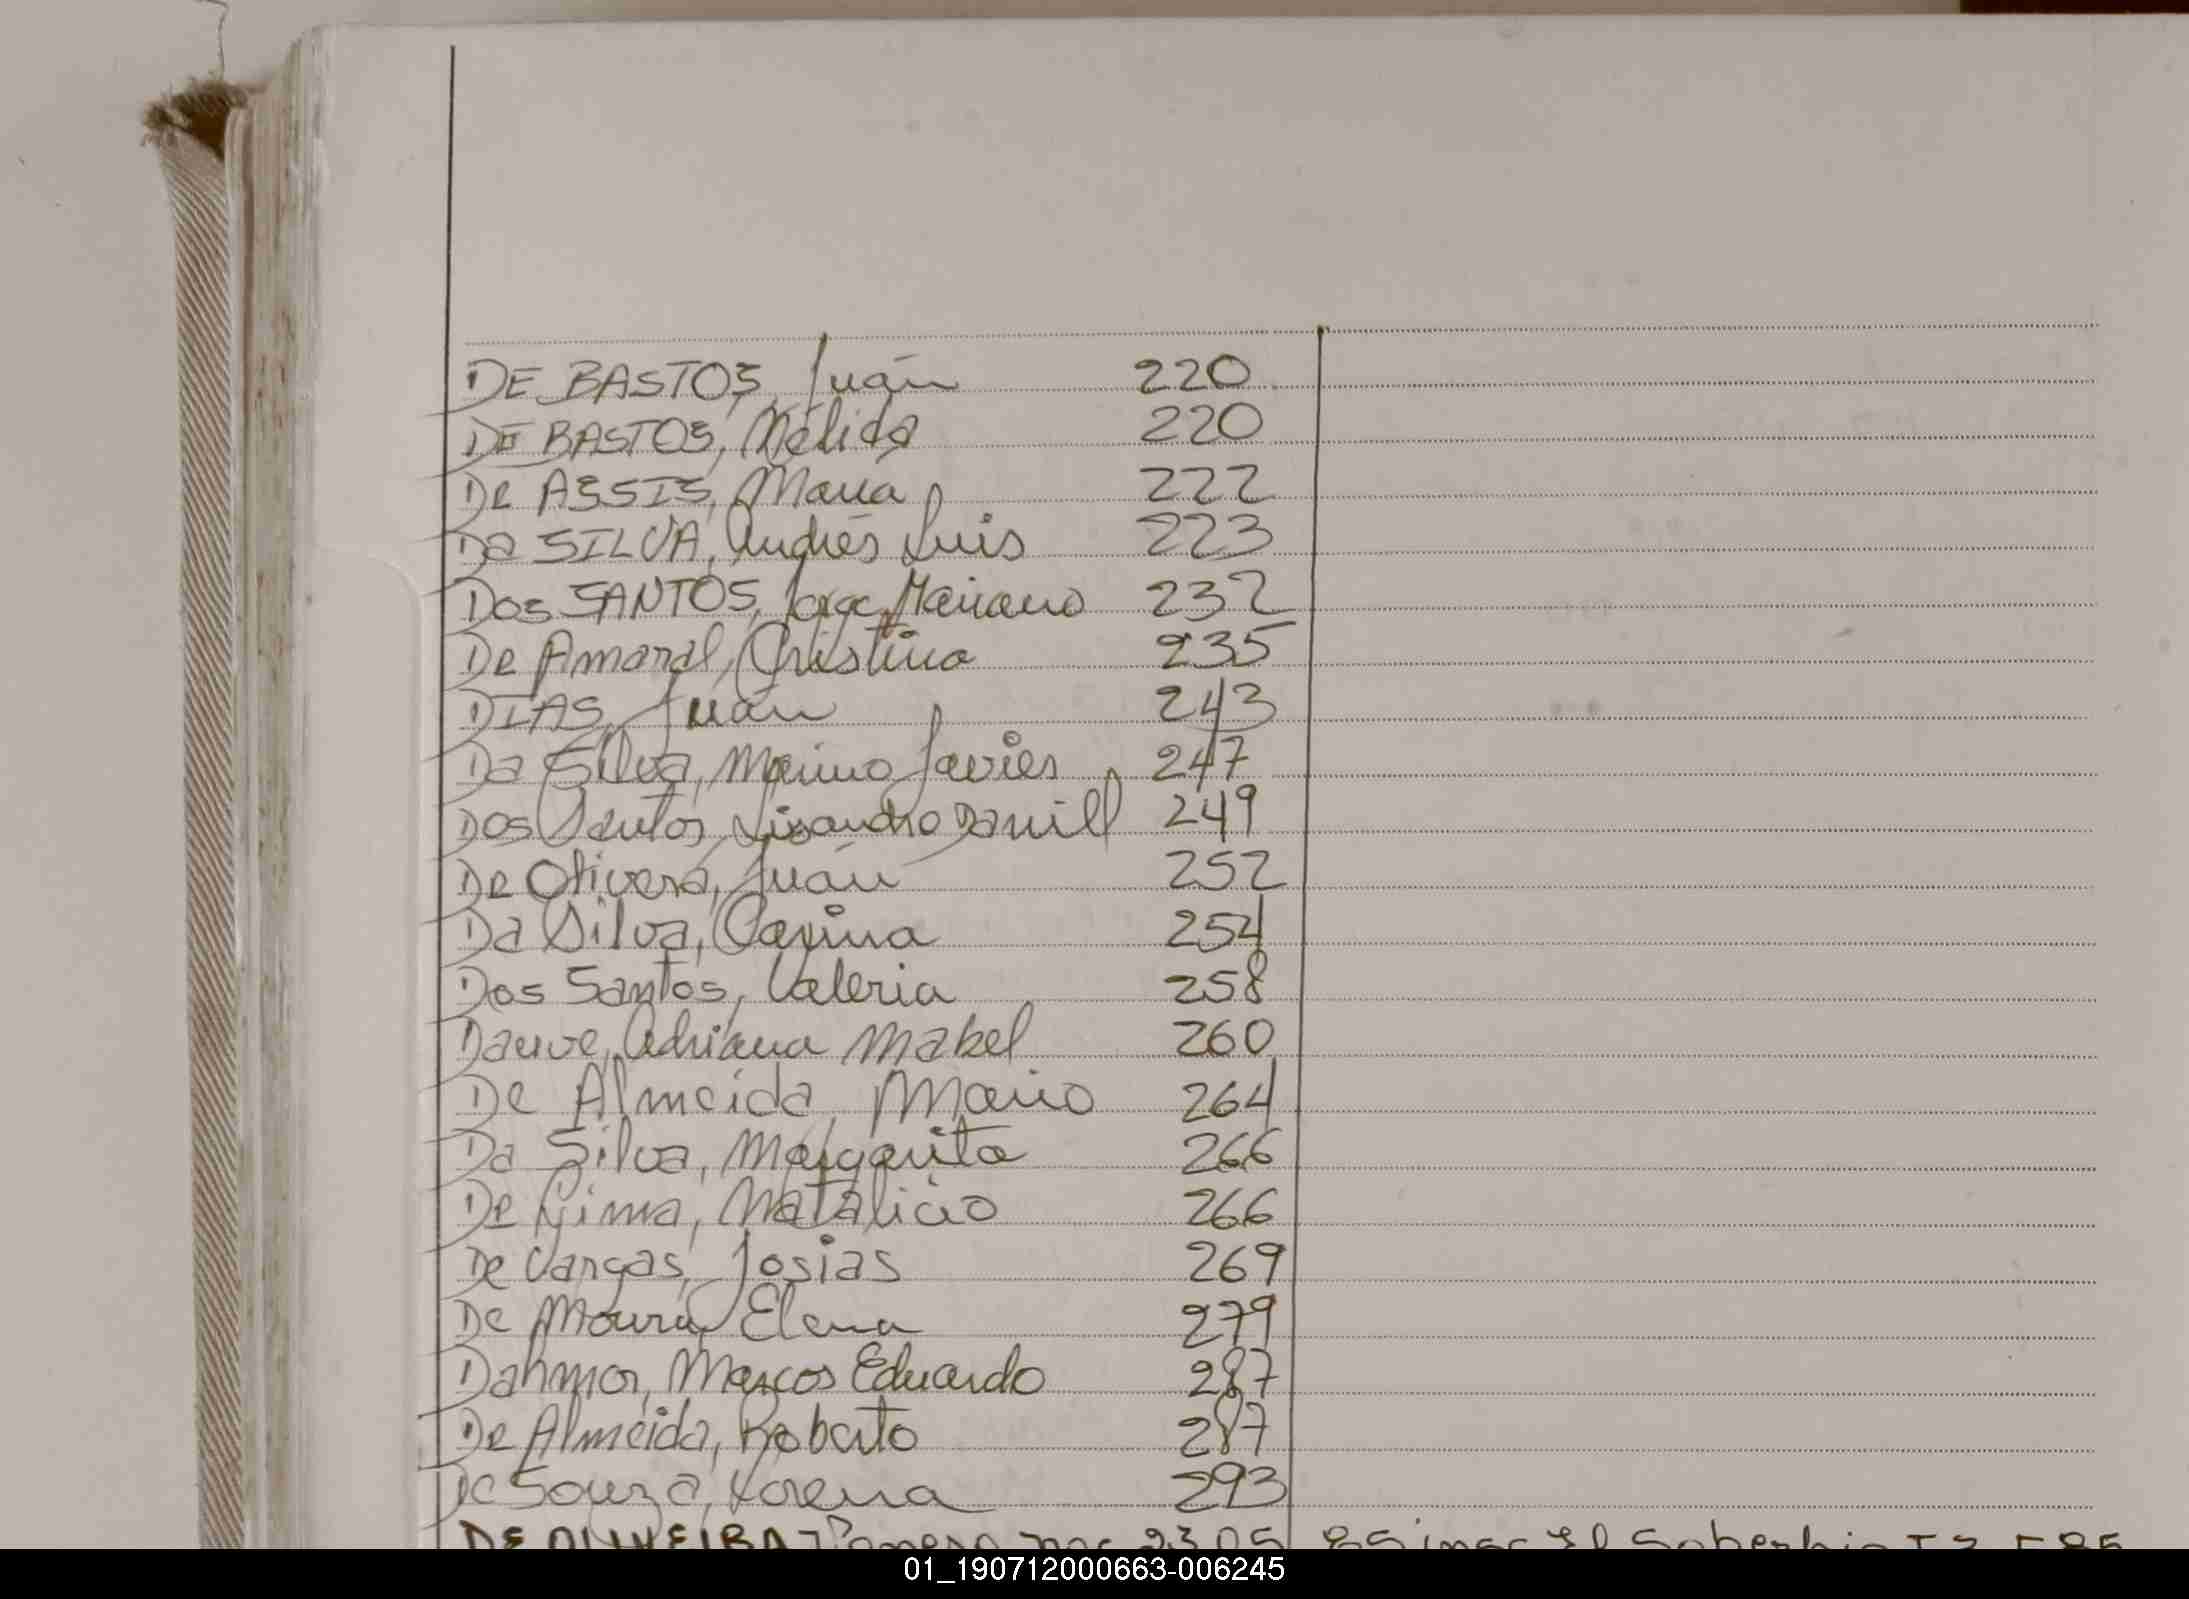 DE BASTOS, Juán 220
DE BASTOS, Nélida 220
De ASSIS, Maria 222
Da SILVA, Andrés Luis 223
Dos SANTOS, Jorge Mariano 232
De Amaral, Cristina 235
DIAS, Juán 243
Da Silva, Marino Javier 247
Dos Santos, Lisandro Daniel 249
De Olivera, Juán 252
Da Silva, Carina 254
Dos Santos, Valeria 258
Adriana Mabel 260
De Almeida, Mario 264
Da Silva, Margarita 266
De Lima, Natalicio 266
De Vargas, Josias 269
De Moura, Elena 279
Dahmer, Marcos Eduardo 287
De Almeida, Roberto 287
De Souza, Lorena 293
DE OLIVEIRA 23 05 85 insc El Soberbio T2 F 85
01_190712000663-006245